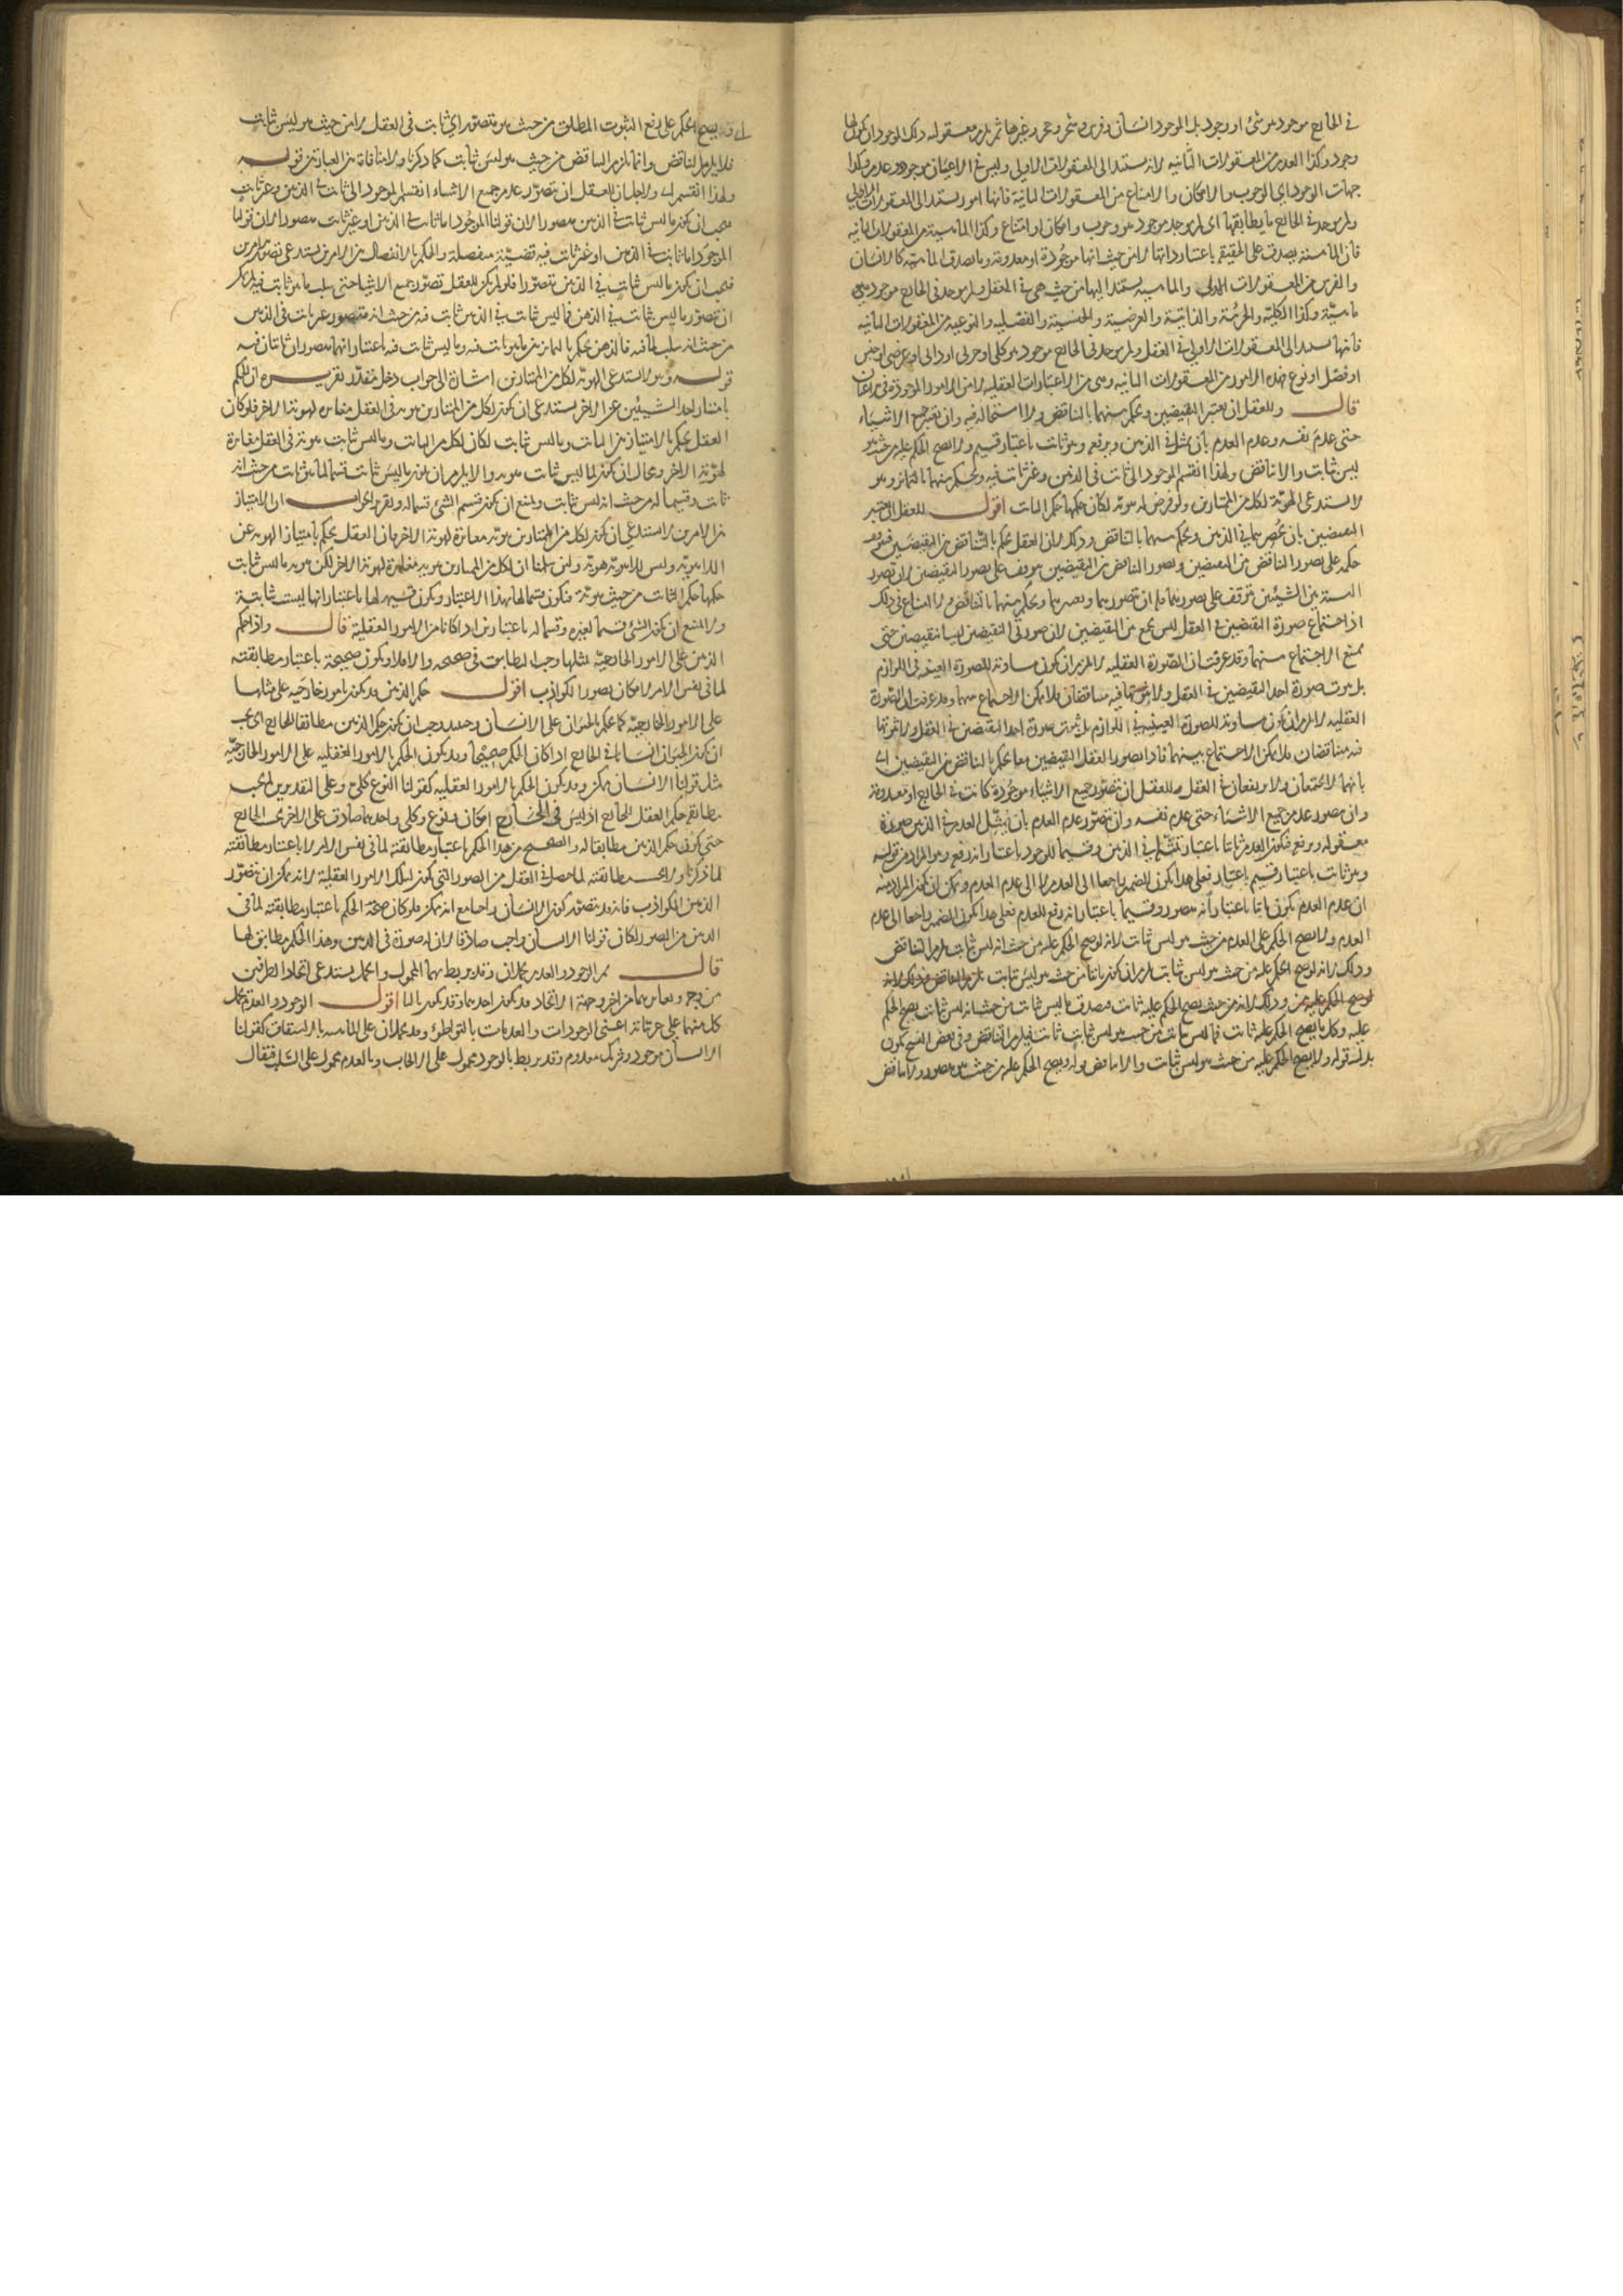 في الخارج موجود هو شيء او وجود بل الموجود انسان وفرس وشجر وحجر وغيرها ثم يلزم معقوليه ذلك الموجود ان يكون لها
وجود وكذا العدم من المعقولات الثانيه لانه يستند الى المعقولات الاولى وليس في الاعيان موجود هو عدم وكذا
جهات الوجود اي الوجوب والامكان والامتناع من المعقولات الثانية فانها امور يستند الى المعقولات الاولى
ولم يوجد في الخارج ما يطابقها اي لم يوجد موجود هو وجوب وامكان او امتناع وكذا الماهية من المعقولات الثانيه
فان الماهية يصدق على الحقيقه باعتبار ذاتها لا من حيث انها موجودة او معدومة وما يصدق الماهية كالانسان
والفرس من المعقولات الاولى والماهية يستند اليها من حيث هي في العقل ولم يوجد في الخارج موجود هو
ماهيّة وكذا الكليّة والجزئية والذاتيّة والعرضية والجنسية والفصليه والنوعية من المعقولات الثانيه
فانها يستند الى المعقولات الاولى في العقل ولم يوجد في الخارج موجود هو كلي او جزئي او ذاتي او عرضي او جنس
او فصل او نوع فهذه الامور من المعقولات الثانيه وهي من الاعتبارات العقليه لا من الامور الموجودة في الاعيان
قال وللعقل ان يعتبر النقيضين ويحكم بينهما بالتناقض ولا استحالة فيه وان يتصور جميع الاشياء
حتى عدم نفسه وعدم العدم بان يتمثل في الذهن ويرفعه وهو ثابت باعتبار قسيم ولا يصح الحكم عليه من حيث هو
ليس ثابت والا تناقض ولهذا انقسم الموجود الى ثابت في الذهن وغير ثابت فيه ويحكم بينهما بالتمايز وهو
لا يستدعي الهوية لكل من المتمايزين ولو فرض له هويّة لكان حكمها حكم الثابت اقول للعقل ان يعتبر
النقيضين بان يحضرهما في الذهن ويحكم بينهما بالتناقض وذلك لان العقل يحكم بالتناقض بين النقيضين فيتوقف
حكمه على تصور التناقض بين النقيضين وتصور التناقض بين النقيضين موقوف على تصور النقيضين لان تصور
النسبة بين الشيئين يتوقف على تصورهما فله ان يتصورهما ويعتبرهما ويحكم بينهما بالتناقض ولا امتناع في ذلك
اذ اجتماع صورة النقيضين في العقل ليس بجمع بين النقيضين لان صورتي النقيضين ليسا نقيضين حتى
يمتنع الاجتماع بينهما وقد عرفت ان الصّورة العقليه لا يلزم ان تكون مساوية للصورة العينية في اللوازم
بل ثبوت صورة احد النقيضين في العقل ولا ثبوتها فيه متناقضان فلا يمكن الاجتماع بينهما وقد عرفت ان الصّورة
العقليه لا يلزم ان تكون مساوية للصورة العينية في اللوازم بل ثبوت صورة احد النقيضين في العقل ولا ثبوتها
فيه متناقضان فلا يمكن الاجتماع بينهما فاذا تصور العقل النقيضين معا يحكم بالتناقض بين النقيضين اي
بانهما لا يجتمعان ولا يرتفعان في العقل وللعقل ان يتصوّر جميع الاشياء موجودة كانت في الخارج او معدومة
وان يتصور عدم جميع الاشياء حتى عدم نفسه وان يتصوّر عدم العدم بان يتمثّل العدم في الذهن صورة
معقوله ويرفعه فيكون العدم ثابتا باعتبار تمثّله في الذهن وقسيما للوجود باعتبار انه رفعه وهو المراد من قوله
وهو ثابت باعتبار قسيم باعتبار فعلى هذا يكون الضمير راجعا الى العدم لا الى عدم العدم ويمكن ان يكون المراد منه
ان عدم العدم يكون ثابتا باعتبار انه متصور وقسيما باعتبار انه رفع للعدم فعلى هذا يكون الضمير راجعا الى عدم
العدم ولا يصح الحكم على العدم من حيث هو ليس ثابت لانه لو صح الحكم عليه من حيث انه ليس ثابت يلزم التناقض
وذلك لانه لو صح الحكم عليه من حيث هو ليس ثابت يلزم ان يكون ثابتا من حيث هو ليس ثابت فيلزم التناقض وذلك لانه
لو صح الحكم عليه من وذلك لانه من حيث يصح الحكم عليه ثابت فيصدق ما ليس ثابت من حيث انه ليس ثابت يصح الحكم
عليه وكل ما يصح الحكم عليه ثابت فما ليس ثابت من حيث هو ليس ثابت ثابت فيلزم التناقض وفي بعض النسخ يكون
بدل قوله ولا يصح الحكم عليه من حيث هو ليس ثابت والا تناقض قوله ويصح الحكم عليه من حيث هو متصور ولا تناقض
اي وقد يصح الحكم على رفع الثبوت المطلق من حيث هو متصور اي ثابت في العقل لا من حيث هو ليس ثابت
فلا يلزم التناقض وانما يلزم التناقض من حيث هو ليس ثابت كما ذكرنا ولا منافاة بين العبارتين قوله
ولهذا انقسم اي ولاجل ان للعقل ان يتصوّر عدم جميع الاشياء انقسم الموجود الى ثابت في الذهن وغير ثابت
فيجب ان يكون ما ليس ثابت في الذهن متصورا لان قولنا الموجود اما ثابت في الذهن او غير ثابت متصورا لان قولنا
الموجود اما ثابت في الذهن او غير ثابت فيه قضيّة منفصلة والحكم بالانفصال بين الامرين يستدعي تصور الامرين
فيجب ان يكون ما ليس ثابت في الذهن متصوّرا فلو لم يكن للعقل تصوّر جميع الاشياء حتى سلب ما هو ثابت فيه لم يكن
ان يتصوّر ما ليس ثابت في الذهن فما ليس ثابت في الذهن ثابت فيه من حيث انه متصور غير ثابت في الذهن
من حيث انه سلب لما فيه فالذهن يحكم بالتمايز بين ما هو ثابت فيه وما ليس ثابت فيه باعتبار انهما متصوران ثابتان فيه
قوله وهو لا يستدعي الهويّة لكل من المتمايزين اشارة الى جواب دخل مقدّر تقريره ان الحكم
بامتياز احد الشيئين عن الاخر يستدعي ان يكون لكل من المتمايزين هوية في العقل مغايرة لهوية الاخر فلو كان
العقل يحكم بالامتياز بين الثابت وما ليس ثابت لكان لكل من الثابت وما ليس ثابت هوية في العقل مغايرة
لهويّة الاخر ومحال ان يكون لما ليس ثابت هوية والا يلزم ان يكون ما ليس ثابت قسما لما هو ثابت من حيث انه
ثابت وقسيما له من حيث انه ليس ثابت ويمتنع ان يكون قسيم الشيء قسما له وتقرير الجواب ان الامتياز
بين الامرين لا يستدعي ان يكون لكل من المتمايزين هويّة مغايرة لهوية الاخر فان العقل يحكم بامتياز الهوية عن
اللاهوية وليس للاهوية هوية ولئن سلمنا ان لكل من المتمايزين هوية مغايرة لهوية الاخر لكن هوية ما ليس ثابت
حكمها حكم الثابت من حيث هوية فيكون قسما لها بهذا الاعتبار ويكون قسيمه لها باعتبار انها ليست ثابتة
ولا يمتنع ان يكون الشيء قسيما لغيره وقسما له باعتبارين اذا كانا من الامور العقلية قال واذا حكم
الذهن على الامور الخارجيّة بمثلها وجب التطابق في صحيحه والا فلا ويكون صحيحه باعتبار مطابقته
لما في نفس الامر لامكان تصور الكواذب اقول حكم الذهن قد يكون بامور خارجيه على مثلها
على الامور الخارجيّة كما يحكم بالحيوان على الانسان وحينئذ وجب ان يكون حكم الذهن مطابقا للخارج اي يجب
ان يكون الحيوان انسانا في الخارج اذا كان الحكم صحيحا وقد يكون الحكم بالامور العقليه على الامور الخارجيّه
مثل قولنا الانسان ممكن وقد يكون الحكم بالامور العقليه كقولنا النوع كلي وعلى التقديرين لا يجب
مطابقة حكم العقل الخارج اذ ليس في الخارج امكان ونوع وكلي واحدهما صادق على الاخر في الخارج
حتى يكون حكم الذهن مطابقا له والصحيح من هذا الحكم باعتبار مطابقته لما في نفس الامر لا باعتبار مطابقته
لما ذكرنا ولا بحسب مطابقته لما حصل في العقل من الصور التي يكون لتلك الامور العقلية لانه يمكن ان يتصوّر
الذهن الكواذب فانه قد يتصور كون الانسان واجبا مع انه ممكن فلو كان صحة الحكم باعتبار مطابقته لما في
الذهن من الصور لكان قولنا الانسان واجب صادقا لان له صورة في الذهن وهذا الحكم مطابق لها
قال ثم الوجود والعدم يحملان وقد يربط بهما المحمول والحمل يستدعي اتحاد الطرفين
من وجه وتغايرهما من اخر وجهة الاتحاد قد يكون احدهما وقد يكون ثالثا اقول الوجود والعدم يحمل
كل منهما على جزئياته اعني الوجودات والعدمات بالتواطؤ وقد يحملان على الماهية بالاشتقاق كقولنا
الانسان موجود وشريك معدوم وقد يربط بالوجود محمول على الايجاب وبالعدم محمول على السلب فيقال